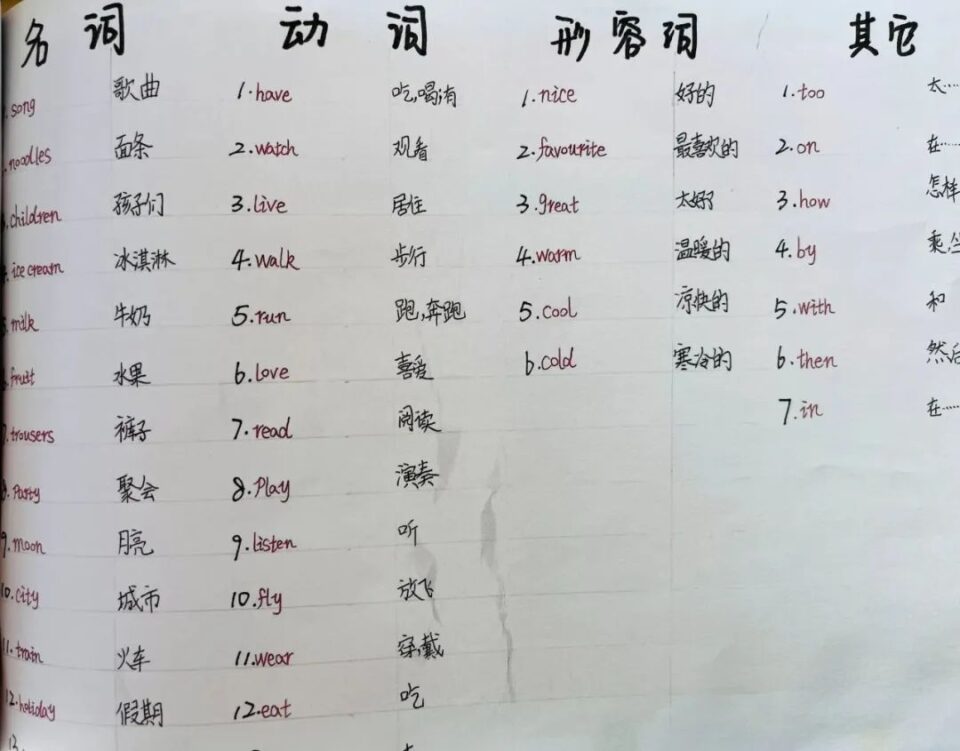 名词 动词 形容词 其它
song 歌曲 1.have 吃,喝,有 1.nice 好的 1.too 太……
noodles 面条 2.watch 观看 2.favourite 最喜欢的 2.on 在……
children 孩子们 3.live 居住 3.great 太好了 3.how 怎样
ice cream 冰淇淋 4.walk 步行 4.warm 温暖的 4.by 乘坐
milk 牛奶 5.run 跑,奔跑 5.cool 凉快的 5.with 和
fruit 水果 6.love 喜爱 6.cold 寒冷的 6.then 然后
7.trousers 裤子 7.read 阅读 7.in 在……
8.Party 聚会 8.Play 演奏
9.moon 月亮 9.listen 听
10.city 城市 10.fly 放飞
11.train 火车 11.wear 穿,戴
12.holiday 假期 12.eat 吃
13.